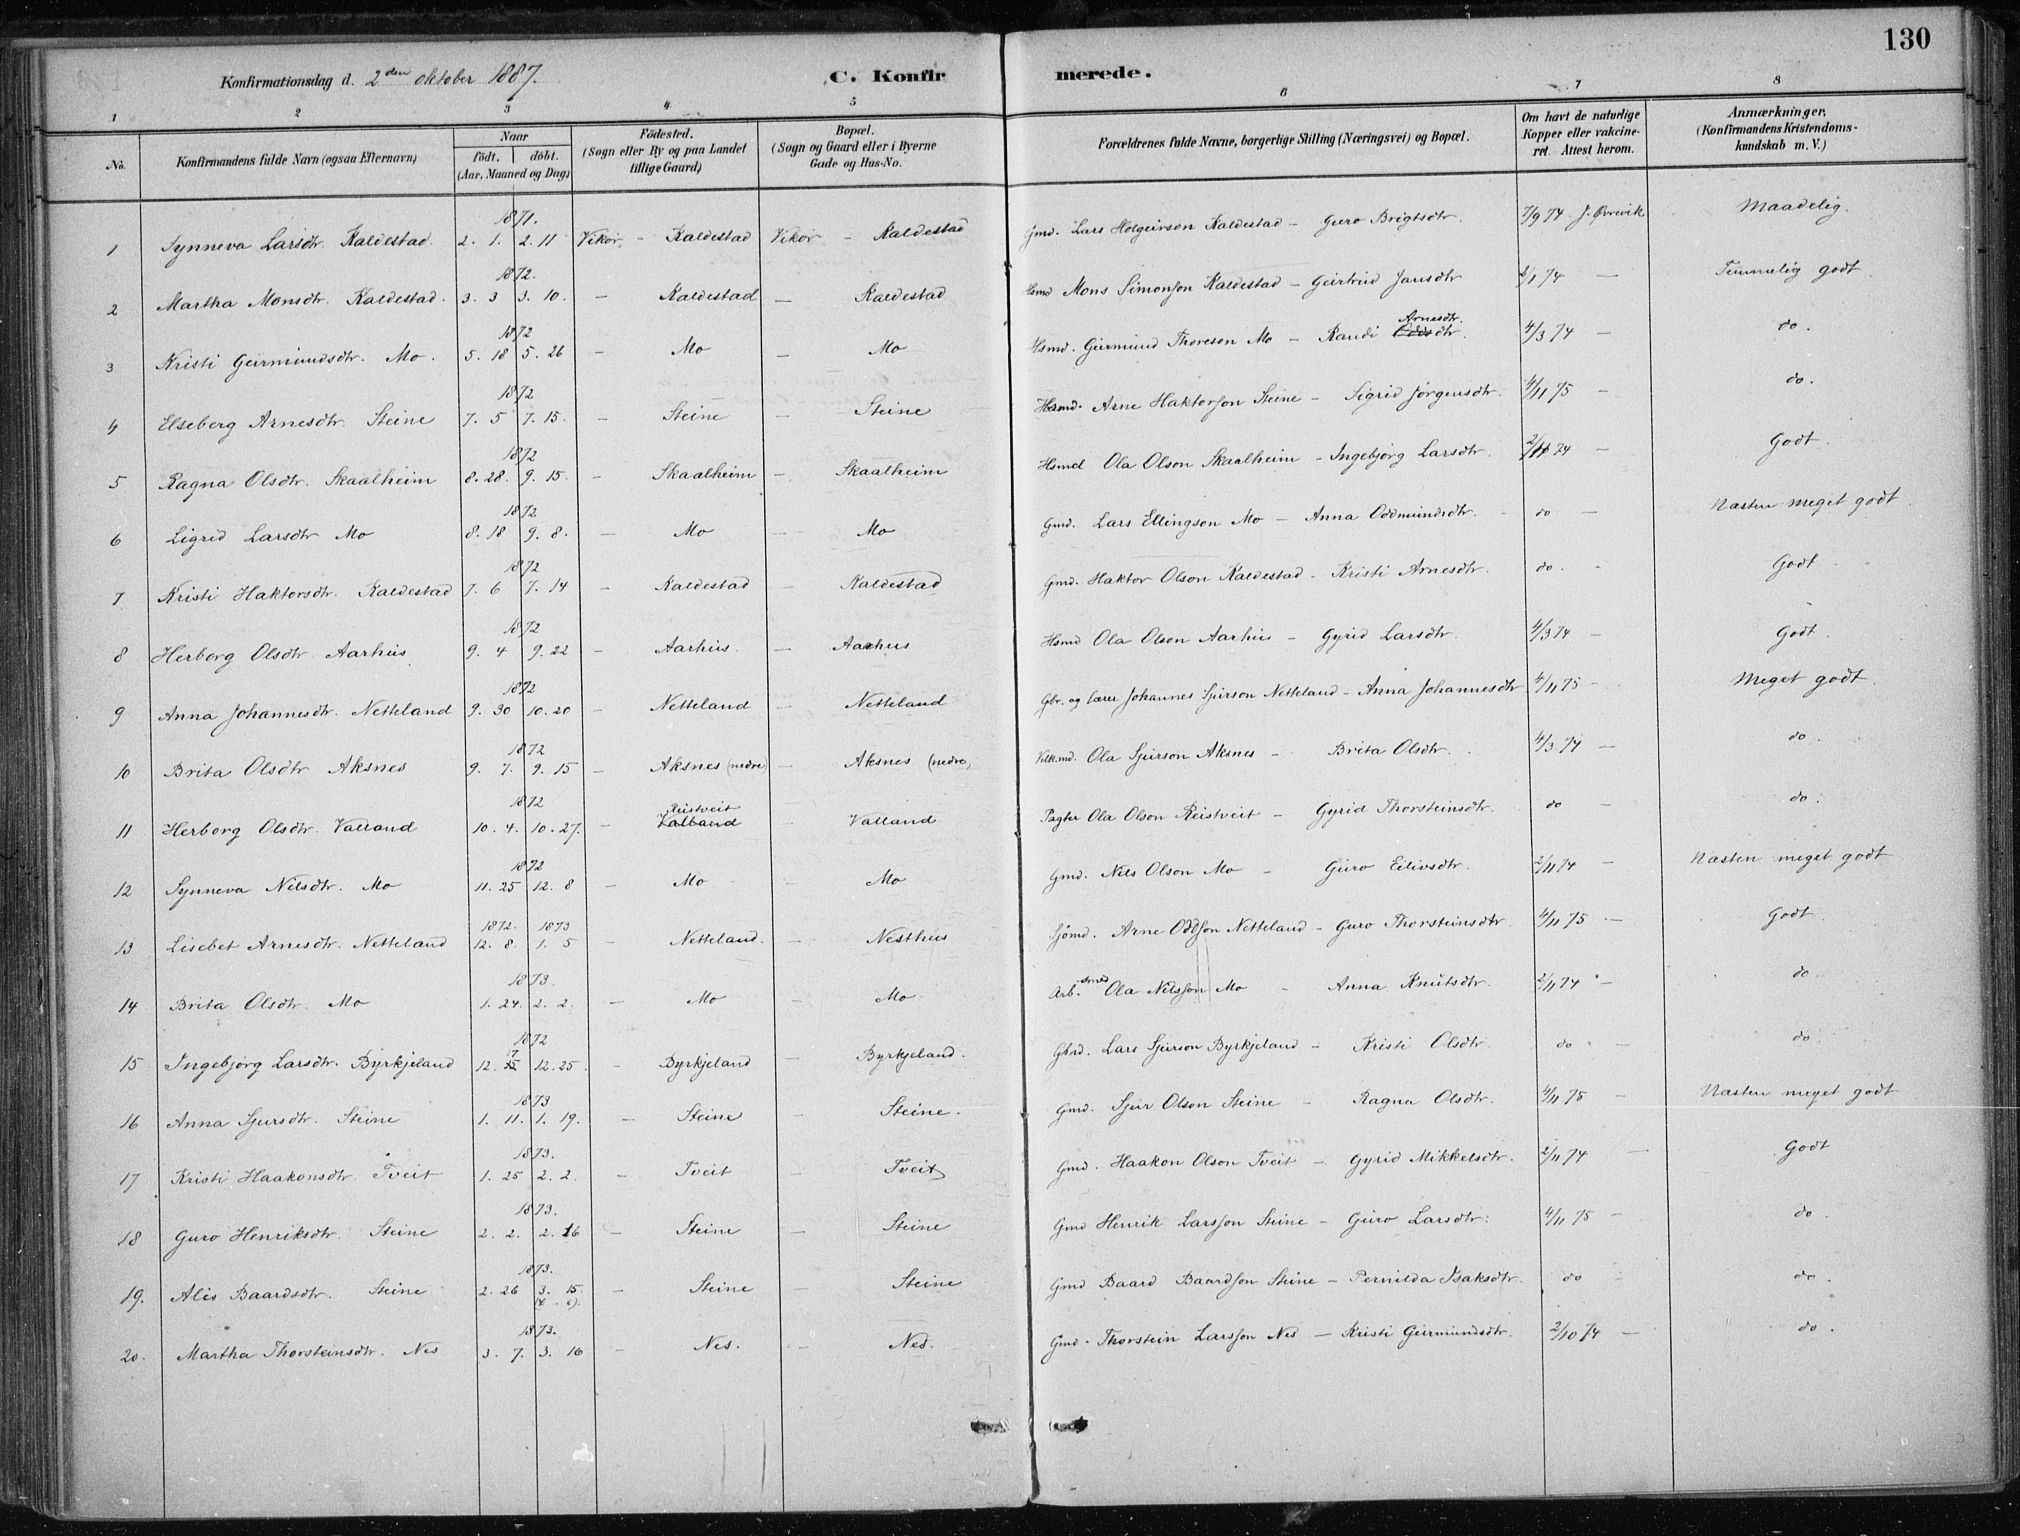 130
Konfirmationsdag d. 2den oktober 1887.
C. Konfirmerede.
1 2 3 4 5 6 7 8
No. Konfirmandens fulde Navn (ogsaa Efternavn) Naar født, døbt. (Aar, Maaned og Dag) Födested. (Sogn eller By og paa Landet tillige Gaard) Bopæl. (Sogn og Gaard eller i Byerne Gade og Hus-No. Forældrenes fulde Navne, borgerlige Stilling (Næringsvei) og Bopæl. Om havt de naturlige Kopper eller vakcineret. Attest herom. Anmærkninger. (Konfirmandens Kristendomskundskab m. V.)
1871.
1 Synneva Larsdtr. Kaldestad. 2. 1. 2. 11 Vikør, - Kaldestad Vikør - Kaldestad Gmd. Lars Holgeirson Kaldestad - Guro Brigtsdtr. 7/9 74 J. Øvrevik Maadelig.
1872.
2 Martha Monsdtr. Kaldestad. 3. 3 3. 10. - Kaldestad - Kaldestad Hsmd Mons Simonson Kaldestad - Geirtrud Jansdtr 2/1 74 - Temmelig godt
1872
3 Kristi Geirmundsdtr. Mo. 5. 18 5. 26 - Mo - Mo Hsmd. Geirmund Thoreson Mo - Randi Arnesdtr. 4/3 74 - do.
1872
4 Elseberg Arnesdtr. Steine 7. 5 7. 15. - Steine - Steine Hsmd. Arne Haktorson Steine - Sigrid Jørgensdtr. 4/11 75 - do.
1872
5 Ragna Olsdtr. Skaalheim 8. 28. 9. 15. - Skaalheim - Skaalheim Hsmd Ola Olson Skaalheim - Ingebjørg Larsdtr. 2/11 74 - Godt.
1872
6 Sigrid Larsdtr Mo 8. 18 9. 8. - Mo - Mo Gmd. Lars Ellingson Mo - Anna Oddmundsdtr. - do - Næsten meget godt.
1872
7 Kristi Haktorsdtr. Kaldestad 7. 6 7. 14 - Kaldestad - Kaldestad Gmd. Haktor Olson Kaldestad - Kristi Arnesdtr. do. - Godt
1872
8 Herborg Olsdtr. Aarhus 9. 4 9. 22 - Aarhus. - Aarhus Hsmd Ola Olson Aarhus - Gyrid Larsdtr. 4/3 74 - Godt.
1872
9 Anna Johannesdtr. Netteland 9. 30 10. 20 - Netteland - Netteland Gbr. og lærer Johannes Sjurson Netteland - Anna Johannesdtr 4/11 75 - Meget godt.
1872
10 Brita Olsdtr Aksnes 9. 7. 9. 15 - Aksnes (nedre) - Aksnes (nedre) Ola Sjurson Aksnes - Brita Olsdtr. 4/3 74 - do.
1872
11 Herborg Olsdtr. Valland 10. 4. 10. 27. - Reistveit Valland - Valland Pagter Ola Olson Reistveit - Gyrid Thorsteinsdtr. do - do.
1872
12 Synneva Nilsdtr. Mo 11. 25 12. 8 - Mo - Mo Gmd. Nils Olson Mo - Guro Eilivsdtr. 2/11 74 - Næsten meget godt
1872. 1873
13 Lisebet Arnesdtr. Netteland 12. 8. 1. 5 - Netteland. - Nesthus Sjömd. Arne Oddson Netteland - Guro Thorsteinsdtr 4/11 75 - Godt.
1873.
14 Brita Olsdtr. Mo 1. 24. 2. 2. - Mo - Mo Arb.smd Ola Nilsson Mo - Anna Knutsdtr. 2/11 74 - do.
1872
15 Ingebjørg Larsdtr. Byrkjeland 12. 17 12. 25. - Byrkjeland - Byrkjeland. Gbrd. Lars Sjurson Byrkjeland - Kristi Olsdtr do - do.
1873
16 Anna Sjursdtr. Steine 1. 11. 1. 19. - Steine - Steine. Gmd. Sjur Olson Steine - Ragna Olsdtr. 4/11 75 - Næsten meget godt
1873.
17 Kristi Haakonsdtr. Tveit 1. 25 2. 2. - Tveit - Tveit Gmd. Haakon Olson Tveit - Gyrid Mikkelsdtr. 2/11 74 - Godt
1873.
18 Guro Henriksdtr. Steine 2. 2. 2. 16 - Steine - Steine Gmd Henrik Larsson Steine - Guro Larsdtr. 4/11 75 - do.
1873.
19. Alis Baardsdtr. Steine 2. 26 3. 15. (4. 6). - Steine - Steine Gmd Baard Baardson Steine - Pernilda Isaksdtr. do - do.
1873.
20. Martha Thorsteinsdtr. Nes 3. 7. 3. 16 - Nes. - Nes. Gmd. Thorstein Larsson Nes - Kristi Geirmundsdtr. 2/10 74 - do.